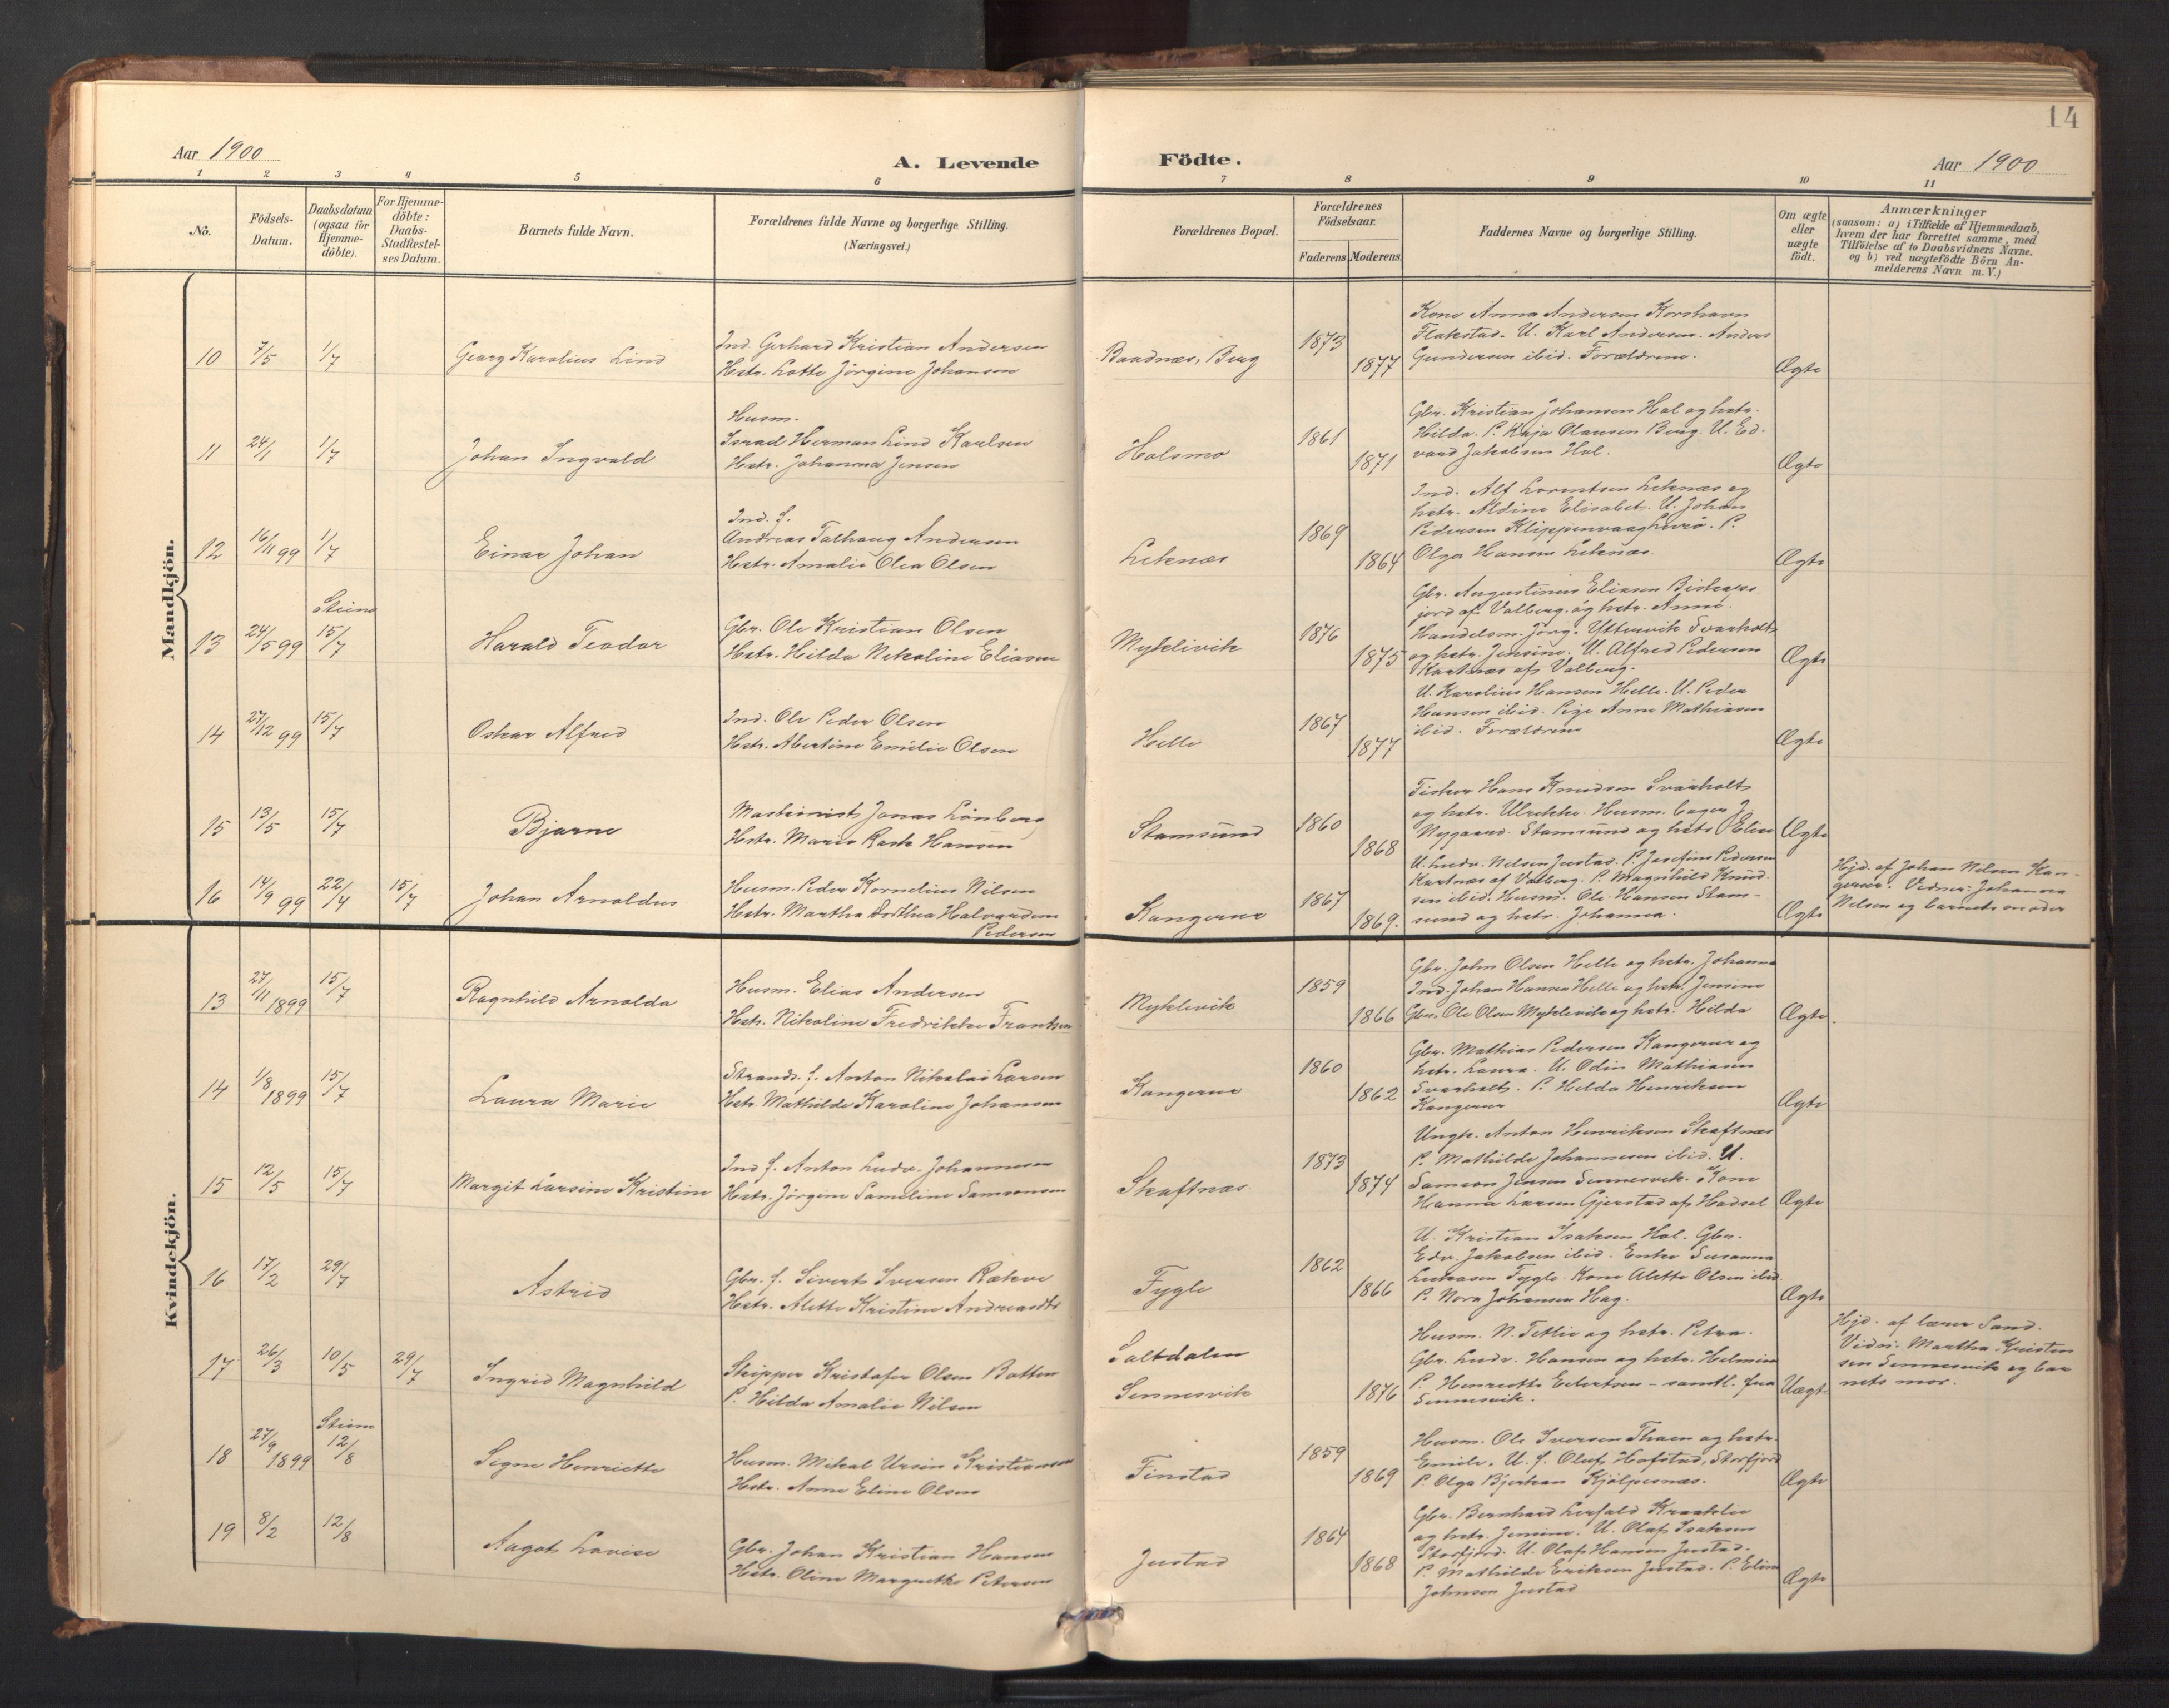 14
Aar 1900
A. Levende Födte.
Aar 1900
1 2 3 4 5 6 7 8 9 10 11
No.
Födsels-Datum.
Daabsdatum (ogsaa for Hjemme-döbte).
For Hjemme-döbte: Daabs-Stadfæstel-ses Datum.
Barnets fulde Navn.
Forældrenes fulde Navne og borgerlige Stilling.
(Næringsvei.)
Forældrenes Bopæl.
Forældrenes Födselsaar.
Faderens Moderens
Faddernes Navne og borgerlige Stilling.
Om ægte eller uægte födt.
Anmærkninger
(saasom: a) i Tilfælde af Hjemmedaab,
hvem der har forrettet samme, med
Tilföielse af to Daabsvidners Navne,
og b) ved uægtefödte Börn An-
melderens Navn m. V.)
Mandkjön.
10 7/5 1/7 Georg Karolius Lind
Ind. Gerhard Kristian Andersen
Hstr. Lotte Jörgine Johansen
Baadnæs, Borg 1873 1877
Kone Anna Andersen Korshavn
Flakstad. U. Karl Andersen. Anders
Gundersen ibid. Forældrene.
Ægte
11 24/1 1/7 Johan Ingvald
Husm.
Israel Herman Lind Karlsen
Hstr. Johanna Jensen
Holsmo 1861 1871
Gbr. Kristian Johansen Hol og hstr.
Hilda. P. Kaja Olausen Borg. U. Ed-
vard Jakobsen Hol.
Ægte
12 16/11 99 1/7 Einar Johan
Ind. f.
Andreas Talhaug Andersen
Hstr. Amalie Olea Olsen
Leknæs 1869 1864
Ind. Alf Lorentsen Leknæs og
hstr. Aldine Elisabet. U. Johan
Pedersen Klippenvaag Lurö. P.
Olga Hansen Leknæs.
Ægte
13 24/5 99 Steine 15/7 Harald Teodor
Gbr. Ole Kristian Olsen
Hstr. Hilda Nikoline Eliasen
Myklivik 1876 1875
Gbr. Augustinus Eliasen Bishops
jord af Valberg og hstr. Anne.
Handelsm. Jörg. Yttervik Svarholt
og hstr. Jensine. U. Alfred Pedersen
Kartnæs af Valberg.
Ægte
14 27/12 99 15/7 Oskar Alfred
Ind. Ole Peder Olsen
Hstr. Abertine Emilie Olsen
Helle 1867 1877
U. Karolius Hansen Helle. U. Peder
Hansen ibid. Pige Anne Mathiasen
ibid. Forældrene
Ægte
15 13/5 15/7 Bjarne
Maskinist Jonas Lönberg
Hstr. Marie Rask Hansen
Stamsund 1860 1868
Fisker Hans Knudsen Svarholt
og hstr. Ulrikke. Husm.
Nygaard Stamsund og hstr. Elise
Ægte
16 14/9 99 22/4 15/7 Johan Arnoldus
Husm. Peder Kornelius Nilsen
Hstr. Martha Dorthea Halvardine
Pedersen
Kangerur 1867 1869.
U. Ludv. Nilsen Justad. P. Josefine Pedersen
Kartnæs af Valberg. P. Magnhild Knud-
sen ibid. Husm. Ole Hansen Stam-
sund og hstr. Johanna.
Ægte
Hjd. af Johan Nilsen Kan-
gerur. Vidner: Johanna
Nilsen og barnets moder
Kvindekjön.
13 27/11 1899 15/7 Ragnhild Arnolda
Husm. Elias Andersen
Hstr. Nikoline Fredrikke Frantsen
Myklevik 1859 1866
Gbr. John Olsen Helle og hstr. Johanna
Ind. Johan Hansen Helle og hstr. Jensine
Gbr. Ole Olsen Myklevik og hstr. Hilda
Ægte.
14 1/8 1899 15/7 Laura Marie
Strands. f. Anton Nikolai Larsen
Hstr. Mathilde Karoline Johansen
Kangerur 1860 1862
Gbr. Mathias Pedersen Kangerur og
hstr. Laura. U. Odin Mathiasen
Svarholt. P. Helda Henriksen
Kangerur
Ægte
15 12/5 15/7 Margit Larsine Kristine
Ind f. Anton Ludv. Johannesen
Hstr. Jörgine Samoline Samsonsen
Skaftnæs 1873 1874
Ungk. Anton Henriksen Skaftnæs
P. Mathilde Johannesen ibid. U.
Samson Jensen Sennesvik. Kone
Hanna Larsen Gjerstad af Hadsel
Ægte
16 17/2 29/7 Astrid
Gbr. f. Sivert Iversen Rækve
Hstr. Alette Kristine Andreasdtr
Fygle 1862 1866
U. Kristian Isaksen Hol. Gbr.
Edv. Jakobsen ibid. Enke Susanna
Lukasen Fygle. Kone Alette Olsen ibid.
P. Nora Johansen Hag.
Ægte
17 26/3 10/5 29/7 Ingrid Magnhild
Skipper Kristofer Olsen Botten
P. Hilda Amalie Nilsen
Saltdalen
Sennesvik 1876
Husm. N. Tetlie og hstr. Petra.
Gbr. Ludv. Hansen og hstr. Helmine
P. Henriette Edvartsen - samtl. fra
Sennesvik.
Uægt.
Hjd. af lærer Sand.
Vidn. Martha Kristen
sen Sennesvik og bar
nets mor.
18 27/9 1899 Steine 12/8 Signe Henriette
Husm. Mikal Ursin Kristiansen
Hstr. Anne Eline Olsen
Finstad 1859 1869
Husm. Ole Iversen Thoen og hstr.
Emilie. U. f. Oluf Hofstad, Storfjord
P. Olga Bjerkan Kjölpesnæs.
Ægte
19 8/2 12/8 Aagot Lovise
Gbr. Johan Kristian Hansen
Hstr. Oline Margrethe Petersen
Justad 1864 1868
Gbr. Bernhard Lerfald Kraaklie
og hstr. Jensine. U. Olaf Isaksen
Storfjord. U. Olaf Hansen Justad.
P. Mathilde Eriksen Justad. P. Eline
Johnsen Justad
Ægte